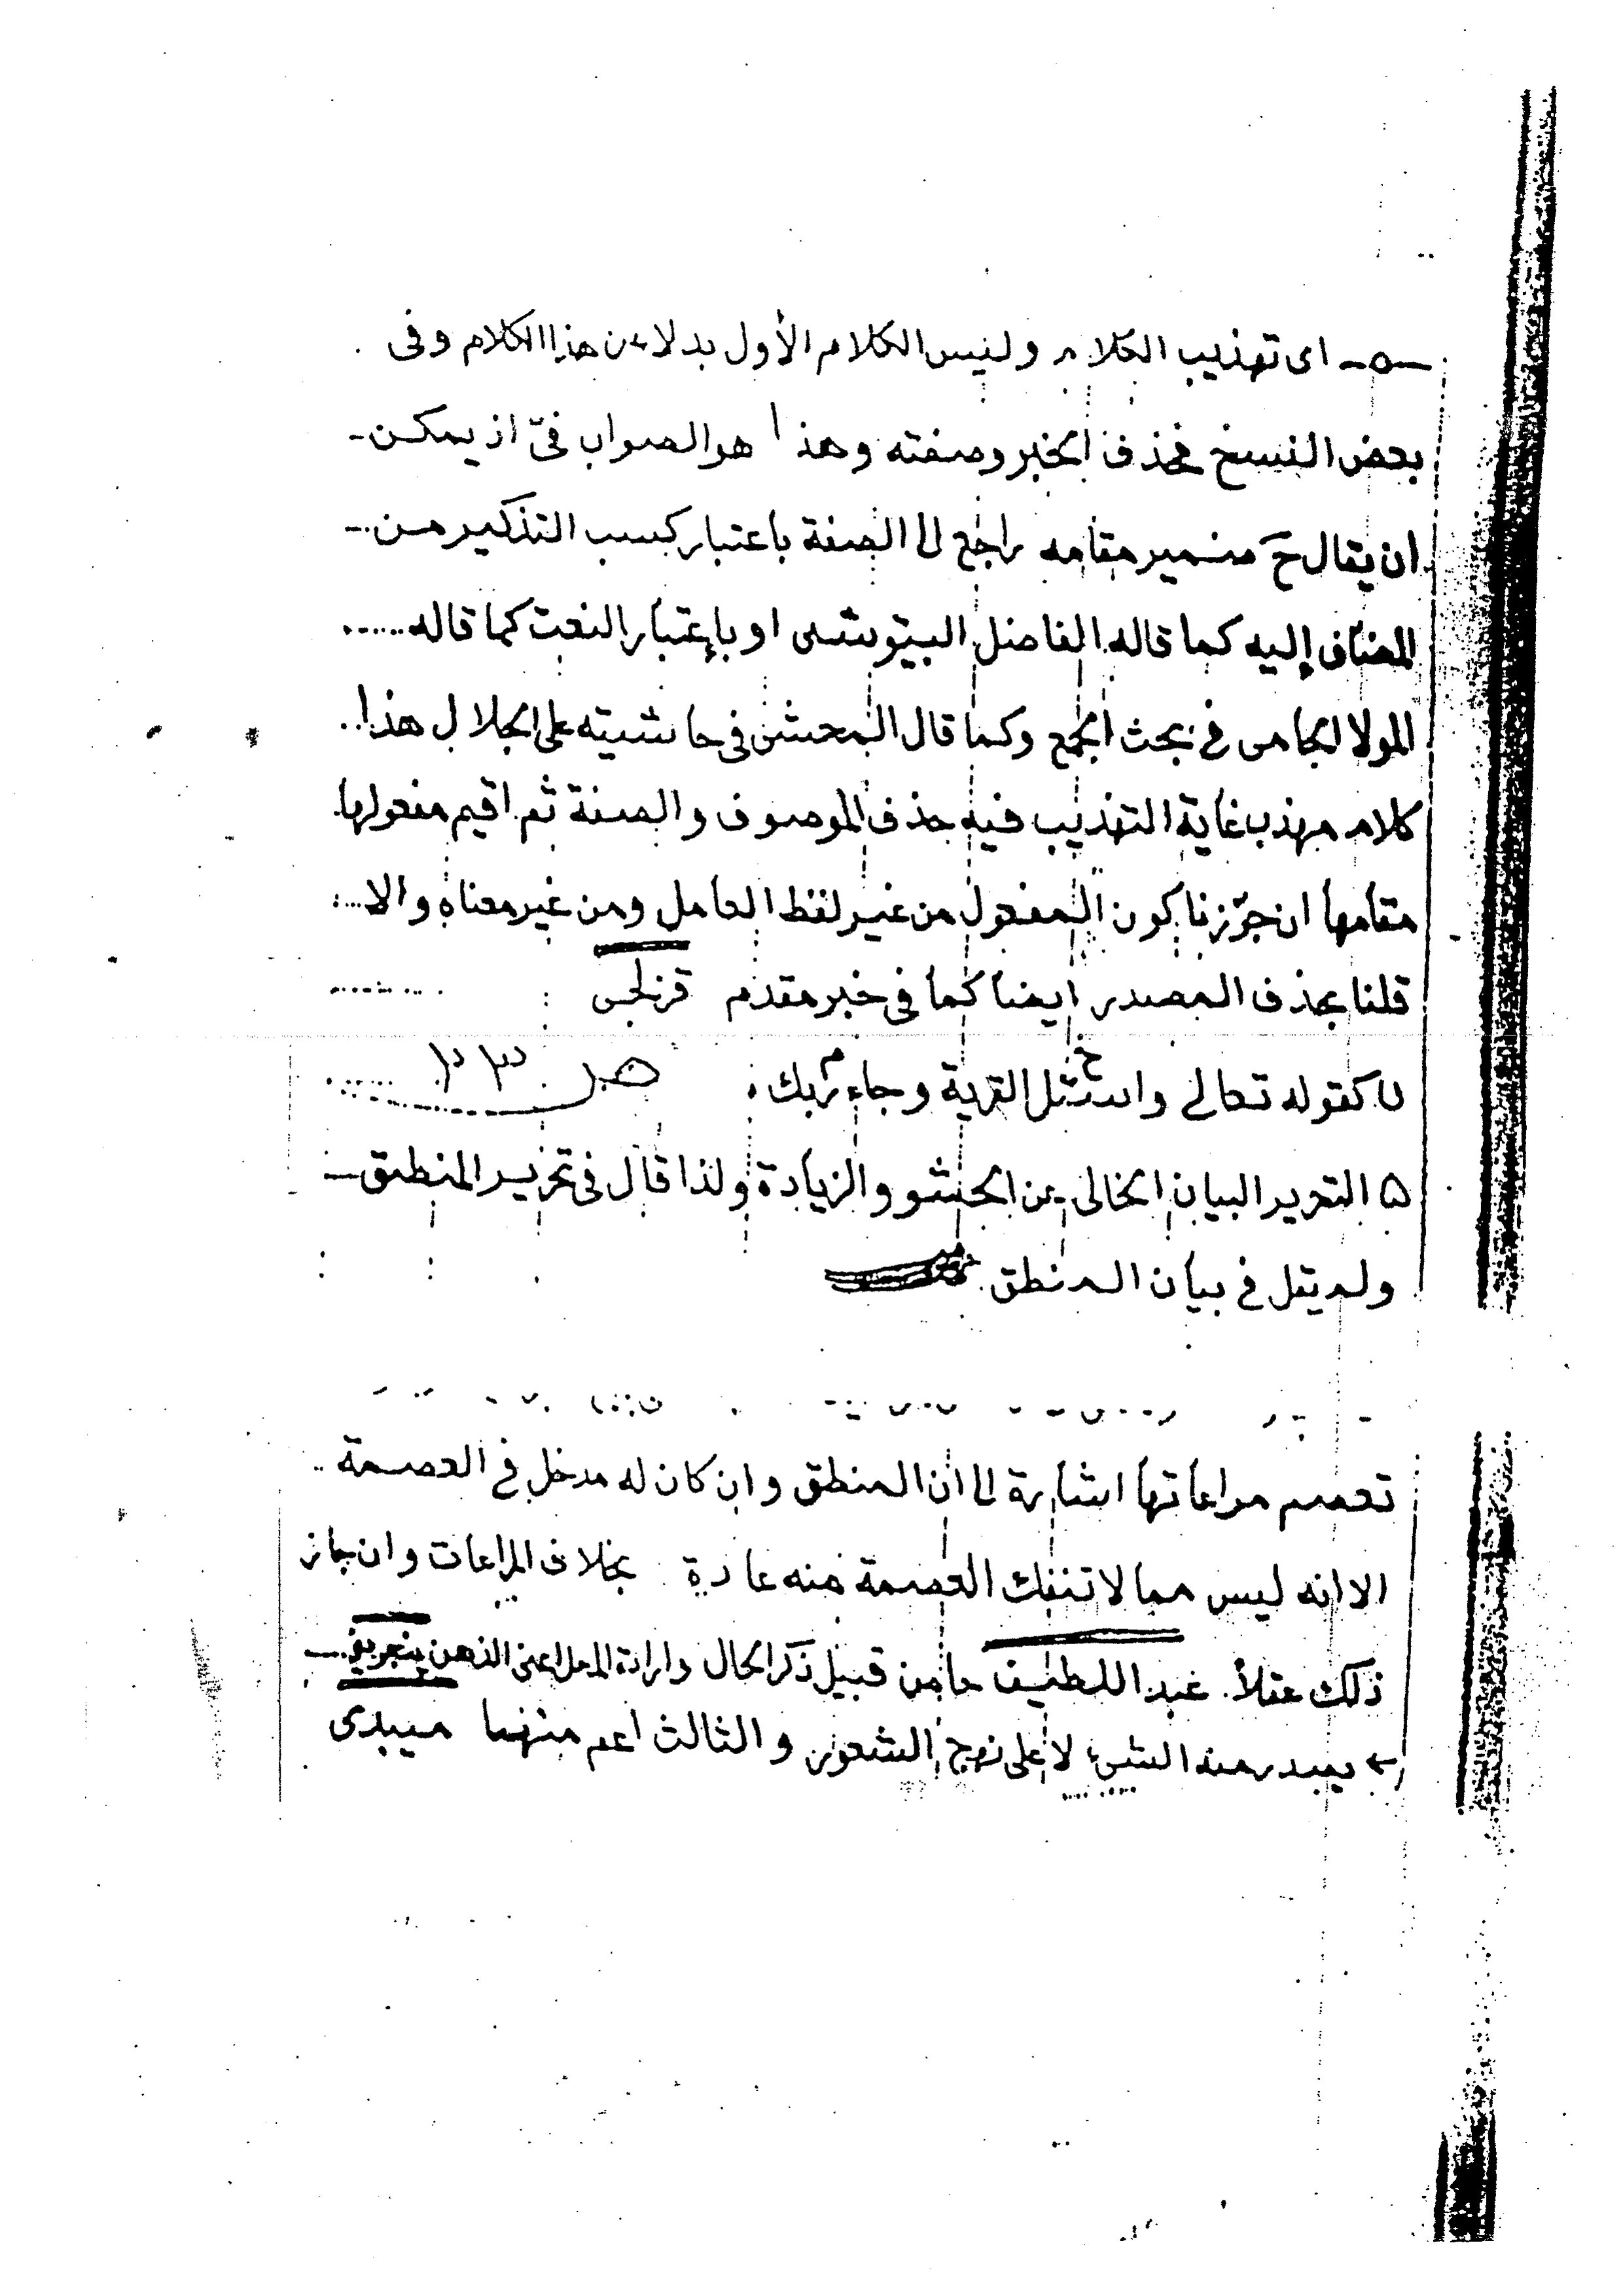 ـ٥ـ اى تهذيب الكلام وليس الكلام الأول بدلا عن هذا الكلام وفى
بعض النسخ فحذف الخبر وصفته وهذا هو الصواب فىّ اذ يمكن
ان يقال حَ ضمير مقامه راجع الى الصفة باعتبار كسب التذكير من
المضاف إليه كما قاله الفاضل البيتوشى او بإعتبار النعت كما قاله
المولا الجامى فى بحث الجمع وكما قال المحشى فى حاشيته على الجلال هذا
كلام مهذب غاية التهذيب فيه حذف الموصوف والصفة ثم اقيم مفعولها
مقامها ان جوّزنا كون المفعول من غير لفظ العامل ومن غير معناه والا
قلنا بحذف المصدر ايضا كما فى خبر مقدم قزلجى
٧ كقوله تعالى واسئل القرية وجاء ربك
۵ التحرير البيان الخالى عن الحشو والزيادة ولذا قال فى تحرير المنطق
ولم يقل فى بيان المنطق
تعصم مراعاتها اشارة الى ان المنطق وان كان له مدخل فى العصمة
الا انه ليس مما لا تنفك العصمة منه عادة بخلاف المراعات وان جاز
ذلك عقلاً. عبد اللطيف من قبيل ذكر الحال وارادة المحل اعنى الذهن
← يصدر منه الشىء لا على نهج الشعور والثالث اعم منهما ميبدى